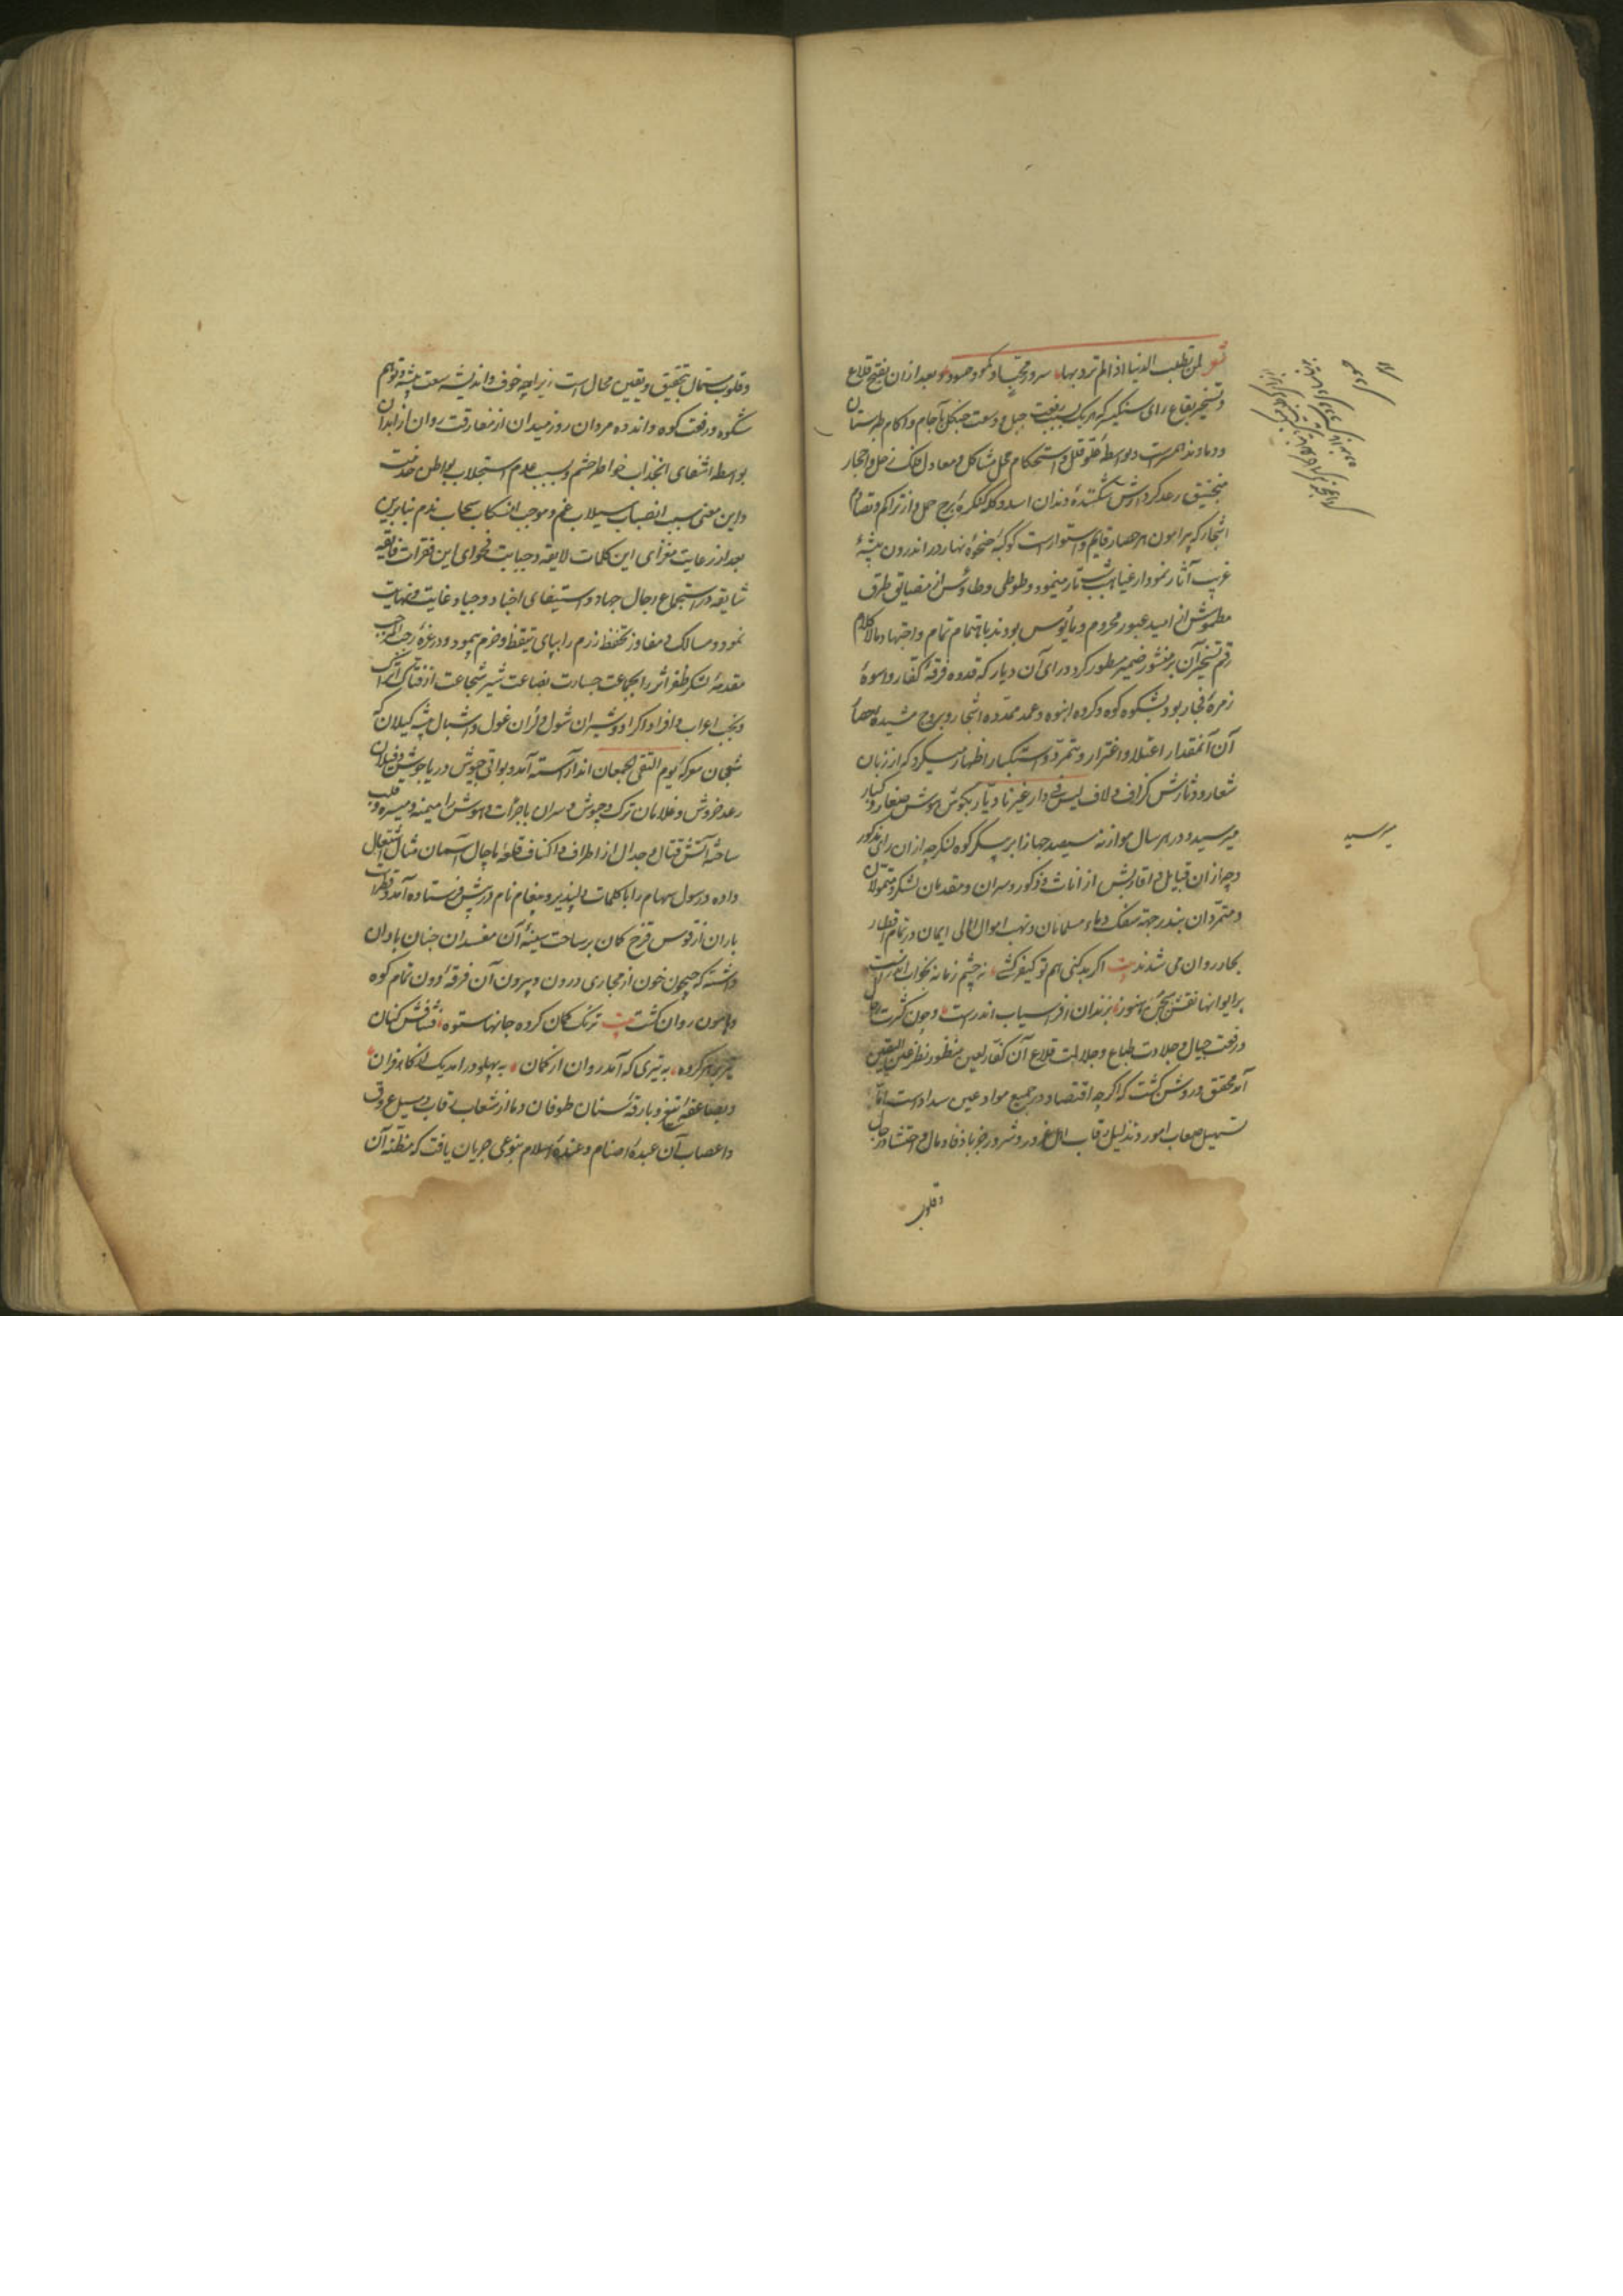 شعر لمن تطلب الدنیا اذا لم ترد بها سرور محب او کمد حسود و بعد ازان بفتح قلاع
و تسخیر بقاع رای سنکیسر که هر یک بسبب رفعت جبل و وسعت جنکل با آجام و اکام طبرستان
و دماوند همسرست و بواسطهٔ علو قلل و استحکام محل مشاکل و معادل فلک زحل و احجار
منجنیق رعد کردارش شکنندهٔ دندان اسد و کله کنکرهٔ برج حمل و از تراکم و تصادم
اشجار که پیرامون هر حصار قایم و استوارست کوکبهٔ ضحوهٔ نهار در اندرون بیشهٔ
غریب آثار نمودار غیاهب شب تار مینمود و طوطی و طاوس از مضایق طرق
مطموسش از امید عبور محروم و مأیوس بودند باهتمام تمام و اجتهاد مالاکلام
رقم تسخیر آن بر منشور ضمیر مسطور کرد و رای آن دیار که قدوه فرقهٔ کفار و اسوهٔ
زمرهٔ فجار بود بشکوه کوه و کروه انبوه و عمد ممدده اشجار و بروج مشیده احصار
آن آنمقدار اعتلا و اغترار و تمرد و استکبار اظهار میکرد که از زبان
شعار و دثارش کزاف و لاف لیس فی الدار غیرنا دیار بکوش هوش صغار و کبار
میرسید و در هر سال موازنه سیصد جهاز ابر پیکر کوه لنکر چه ازان رای مذکور
و چه ازان قبایل و اقاربش از اناث و ذکور و سران و مقدمان لشکر و متمولان
و متمردان بندر جهة سفک دماء مسلمانان و نهب اموال اهالی ایمان در تمام اقطار
بحار روان می شدند بیت اکر بد کنی هم تو کیفر کشی نه چشم زمانه بخواب اندرست
بر ایوانها نقش بیژن هنوز بزندان افراسیاب اندرست و چون کثرت رجال
و رفعت جبال و جلادت طباع و جلالت قلاع آن کفار لعین منظور نظر عین الیقین
آمد محقق و روشن کشت که اکرچه اقتصاد در جمیع مواد عین سدادست اما
تسهیل صعاب امور و تذلیل رقاب اهل غرور و شرور جز بانفاد مال و احتشاد رجال
و قلوب
میرسید
و قلوب مستمال بتحقیق و یقین محال است زیرا چه خوف و اندیشه سعت بیشه و توهم
شکوه و رفعت کوه و اندوه مردان روز میدان از مفارقت روان از ابدان
بواسطه انتفای انجذاب خواطر حشم و بسبب عدم استجلاب بواطن خدمست
و این معنی سبب انصباب سیلاب غم و موجب انسکاب سحاب ندم بنابرین
بعد از رعایت مغزای این کلمات لایقه و جبایت فحوای این فقرات فایقه
شایقه در استجماع رجال جهاد و استیفای اجناد و جیاد غایت و نهایت
نمود و مسالک و مفاوز تحفظ رزم را بپای تیقظ و حزم پیمود و در غرهٔ رجب المرجب
مقدمهٔ لشکر ظفر اثر را بجماعت جسارت بضاعت شیر شجاعت از فتاک اتراک
و نخب اعراب و افراد اکراد و شیران شول و لران غول و اشبال بیشه کیلان که
شجعان معرکهٔ یوم التقی الجمعان اند آراسته آمد و بواقی جیوش دریا جوشش و فیلان
رعد خروش و غلامان ترک و حبوش و سران با جرأت و هوش را میمنه و میسره و قلب
ساخته آتش قتال و جدال از اطراف و اکناف قلعهٔ ماچال آسمان مثال اشتعال
داده و رسول سهام را با کلمات دلپذیر و پیغام نام در پیش فرستاده آمد و قطرات
باران از قوس قزح کمان بر ساحت سینهٔ آن مفسدان چنان باران
داشته که جیحون خون از مجاری درون و بیرون آن فرقهٔ دون تمام کوه
و هامون روان کشت بیت ترنک کمان کرده جانها ستوه فشافش کنان
تیر بر هر کروه به تیری که آمد روان از کمان به پهلو درآمد یک از کافران
و بصاعقهٔ تیغ و بارقهٔ سنان طوفان دما از شعاب رقاب و مسیل عروق
و اعصاب آن عبدهٔ اصنام و عندهٔ اسلام بنوعی جریان یافت که مظنه آن